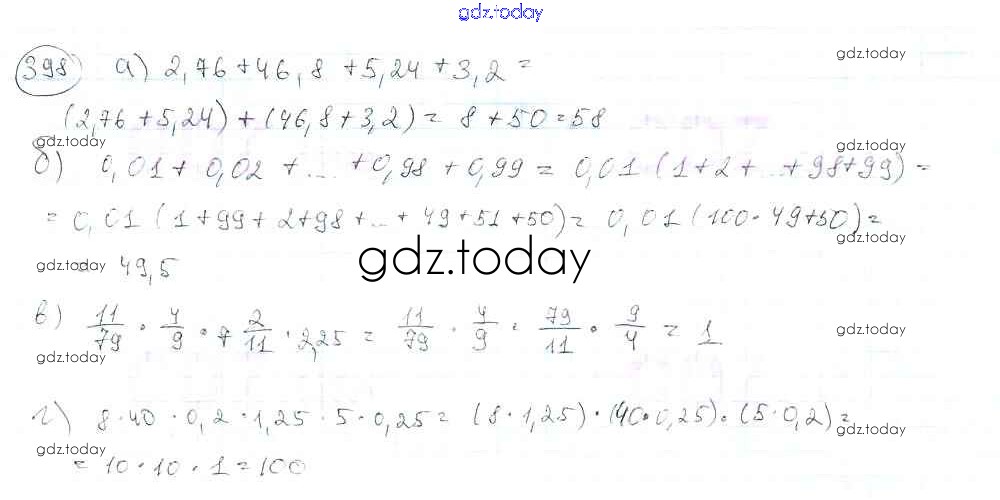 gdz.today
398 а) 2,76+46,8+5,24+3,2=
gdz.today
(2,76+5,24)+(46,8+3,2)= 8+50=58
gdz.today
gdz.today
б) 0,01+0,02+...+0,98+0,99=0,01(1+2+...+98+99)=
=0,01(1+99+2+98+...+49+51+50)=0,01(100·49+50)=
gdz.today
gdz.today
= 49,5
gdz.today
в) 11/79 · 4/9 · 7 2/11 · 2,25 = 11/79 · 4/9 · 79/11 · 9/4 = 1
gdz.today
gdz.today
г) 8·40·0,2·1,25·5·0,25=(8·1,25)·(40·0,25)·(5·0,2)=
gdz.today
gdz.today
=10·10·1=100